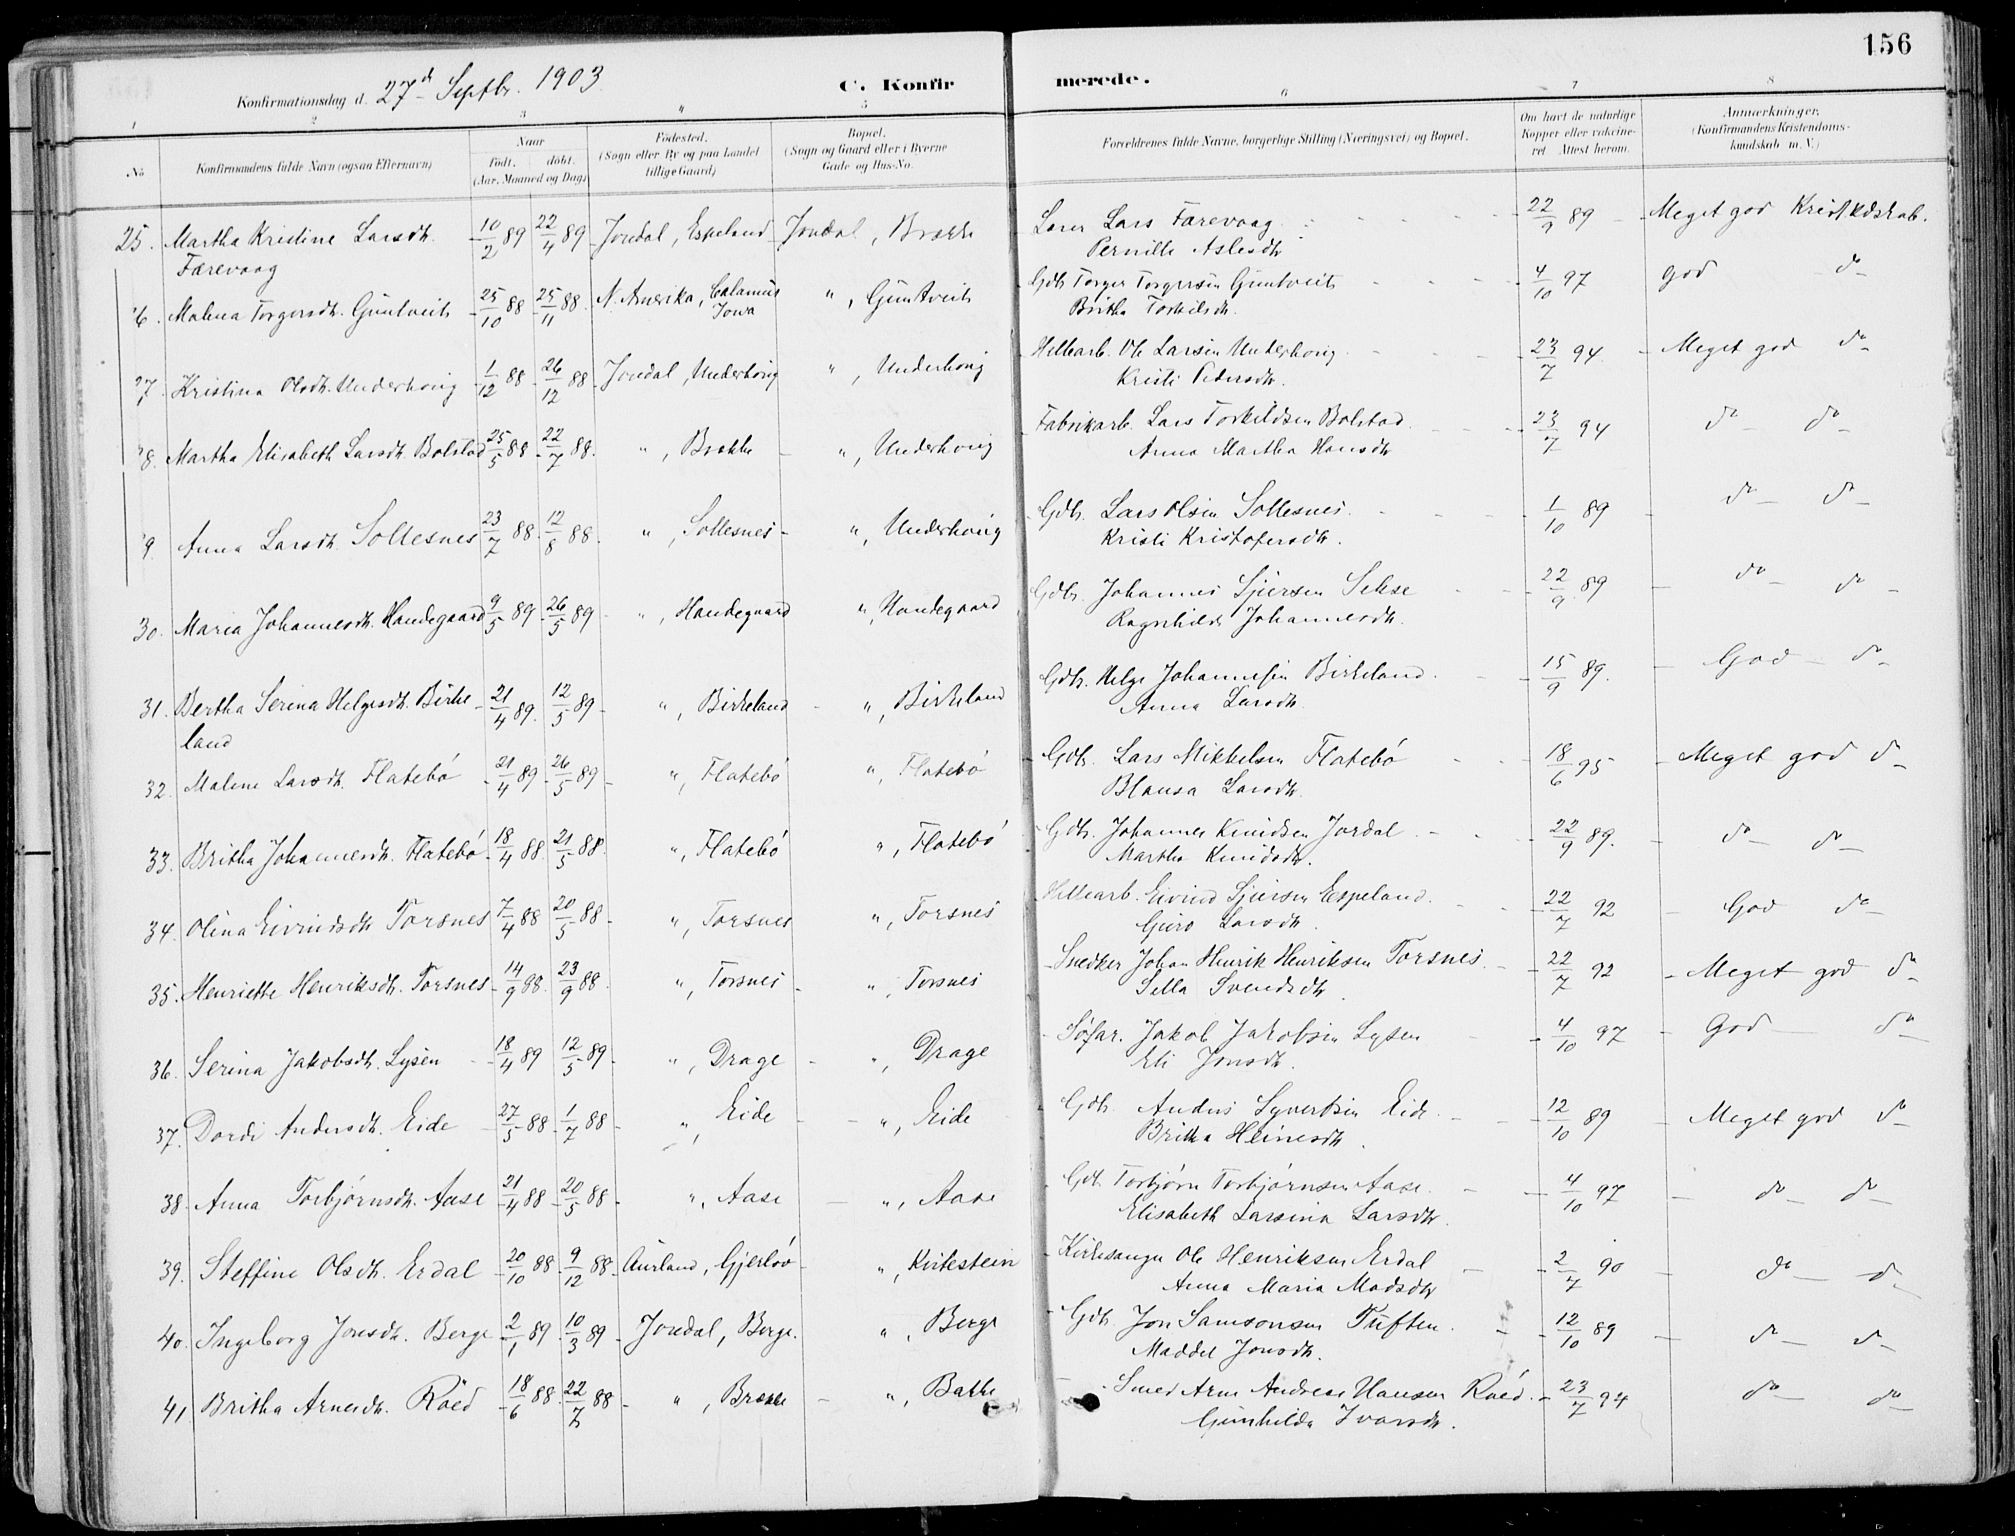 156
Konfirmationsdag d. 27d Septbr. 1903
C. Konfirmerede.
1 2 3 4 5 6 7 8
No
Konfirmandens fulde Navn (ogsaa Efternavn)
Naar
født. døbt.
(Aar, Maaned og Dag)
Fødested.
(Sogn eller By og paa Landet
tillige Gaard)
Bopæl.
(Sogn og Gaard eller i Byerne
Gade og Hus-No.
Forældrenes fulde Navne, borgerlige Stilling (Næringsvei) og Bopæl.
Om havt de naturlige
Kopper eller vakcine-
ret Attest herom.
Anmærkninger.
(Konfirmandens Kristendoms-
kundskab m. V.)
25. Martha Kristine Larsdtr. 10/2 89 22/4 89 Jondal, Espeland Jondal, Brække Lærer Lars Færevaag 22/9 89 Meget god Kristkdskab.
Færevaag Pernille Aslesdtr
26. Malena Torgersdtr. Guntveit 25/10 88 25/11 88 N. Amerika, Calamus ", Guntveit Gdb. Torger Torgersen Guntveit 4/10 97 God do
Iowa Britha Torkilsdtr.
27. Kristina Olsdtr. Underhaug 1/12 88 26/12 88 Jondal, Underhaug ", Underhaug Hellearb. Ole Larsen Underhaug 23/7 94 Meget god do
Kristi Pedersdtr.
28. Martha Elisabeth Larsdtr. Bolstad 25/5 88 22/7 88 ", Brække ", Underhaug Fabrikarb. Lars Torkildsen Bolstad 23/7 94 do do
Anna Martha Hansdtr
29. Anna Larsdtr. Sollesnes 23/7 88 12/8 88 ", Sollesnes ", Underhaug Gdb. Lars Olsen Sollesnes 1/10 89 do do
Kristi Kristofersdtr.
30. Maria Johannesdtr. Handegaard 9/5 89 26/5 89 ", Handegaard ", Handegaard Gdbr. Johannes Sjursen Sekse 22/9 89 do do
Ragnhilda Johannesdtr.
31. Bertha Serina Helgesdtr. Birke 21/4 89 12/5 89 ", Birkeland ", Birkeland Gdbr. Helge Johannesen Birkeland 15/9 89 God do
land Anna Larsdtr.
32. Malene Larsdtr. Flatebö 21/4 89 26/5 89 ", Flatebö ", Flatebö Gdb. Lars Mikkelsen Flatebö 18/6 95 Meget god do
Blansa Larsdtr.
33. Britha Johannesdtr. Flatebö 18/4 88 21/5 88 ", Flatebö ", Flatebö Gdb. Johannes Knudsen Jordal 22/9 89 do do
Martha Knudsdtr.
34. Olina Eivindsdtr Torsnes 7/4 88 20/5 88 ", Torsnes ", Torsnes Hellearb. Eivind Sjursen Espeland 22/7 92 God do
Guro Larsdtr.
35. Henriette Henriksdtr. Torsnes 14/9 88 23/9 88 ", Torsnes ", Torsnes Snedker Johan Henrik Henriksen Torsnes 22/7 92 Meget god do
Sella Svendsdtr
36. Serina Jakobsdtr. Lysen 18/4 89 12/5 89 ", Drage ", Drage Søfar. Jakob Jakobsen Lysen 4/10 97 God do
Eli Jonsdtr.
37. Dordi Andersdtr. Eide 27/5 88 1/7 88 ", Eide ", Eide Gdb. Anders Syvertsen Eide 12/10 89 Meget god do
Britha Heinesdtr.
38. Anna Torbjørnsdtr. Aase 21/4 88 20/5 88 ", Aase ", Aase Gdb. Torbjørn Torbjørnsen Aase 4/10 97 do do
Elisabeth Larsina Larsdtr.
39. Steffine Olsdtr. Erdal 20/10 88 9/12 88 Aurland, Gjerløv ", Kirkestein Kirkesanger Ole Henriksen Erdal 2/7 90 do do
Anna Maria Madsdtr
40. Ingeborg Jonsdtr. Berge 2/1 89 10/3 89 Jondal, Berge. ", Berge Gdb. Jon Samsonsen Tuften 12/10 89 do do
Maddel Jonsdtr.
41 Britha Arnesdtr. Röed 18/6 88 22/7 88 ", Brække ", Bakke Smed Arne Andreas Hansen Röed 23/7 94 do do
Gunhilda Ivarsdtr.